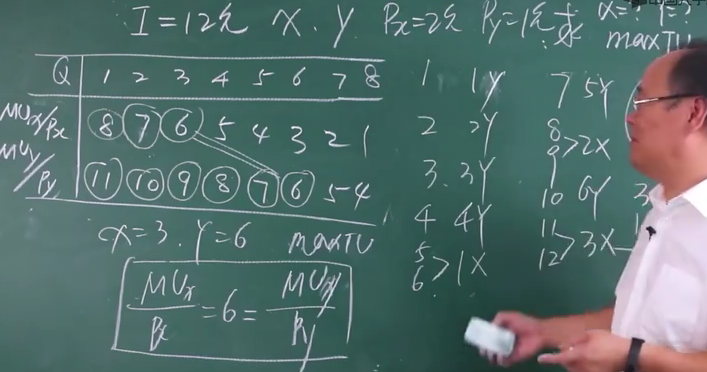 I=12元 X.Y. Px=2元 Py=1元 求 x=? Y=?
maxTU
Q 1 2 3 4 5 6 7 8
MUx/Px 8 7 6 5 4 3 2 1
MUy/Py 11 10 9 8 7 6 5 4
x=3. Y=6 maxTU
MUx/Px = 6 = MUy/Py
1 1Y
2 2Y
3. 3Y
4 4Y
5 6 > 1X
7 5Y
8 9 > 2X
10 6Y
11 12 > 3X